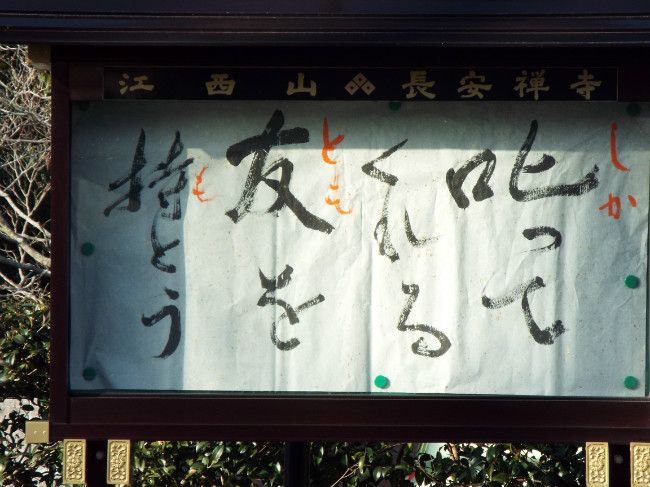 江西山 長安禅寺
叱って
しか
くれる
友を
とも
持とう
も